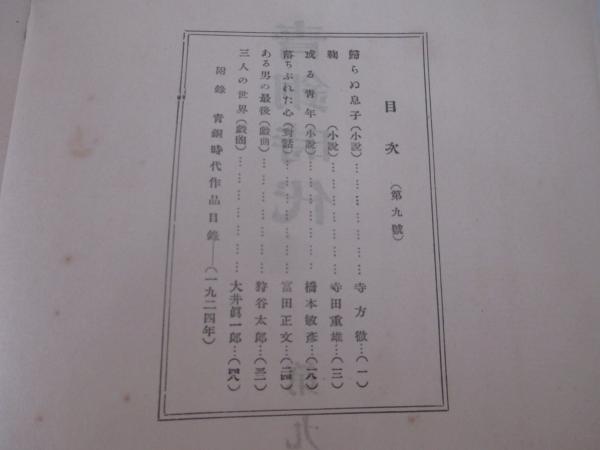 目次(第九號)
歸らぬ息子(小説)……………………寺方徹…(一)
鞠(小説)……………………寺田重雄…(三)
或る青年(小説)……………………橋本敏彦…(一八)
落ちぶれた心(對話)……………………富田正文…(二四)
ある男の最後(戯曲)……………………狩谷太郎…(三一)
三人の世界(戯曲)……………………大井眞一郎…(四八)
附錄 青銅時代作品目錄——(一九二四年)
青銅時代
第九